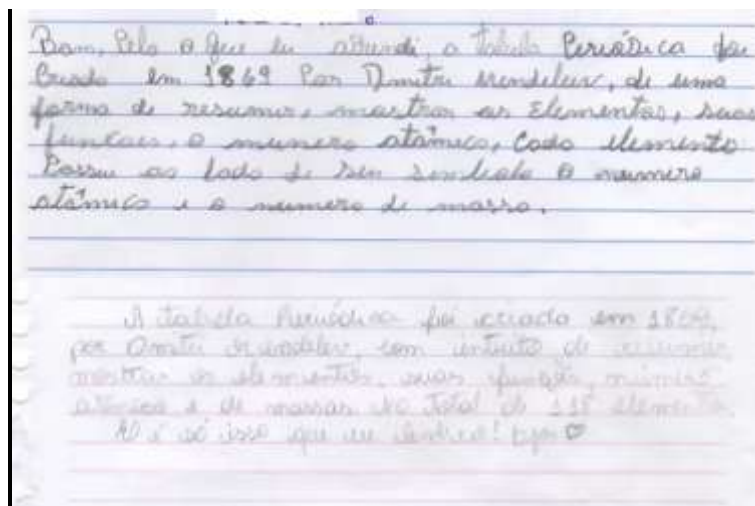 Bom, Pelo o que eu entendi, a tabela Periódica foi
Criada em 1869 Por Dmitri mendeleev, de uma
forma de resumir, mostrar os Elementos, suas
funcoes, o numero atômico, Cada elemento
Possui ao lado de seu simbolo o numero
atômico e o numero de massa.
A tabela Periódica foi criada em 1869,
por Dmitri mendeleev, com intuito de resumir
mostrar os elementos, suas funções, número
atômico e de massas No Total de 118 elementos.
é só isso que eu lembro! bjos ♡